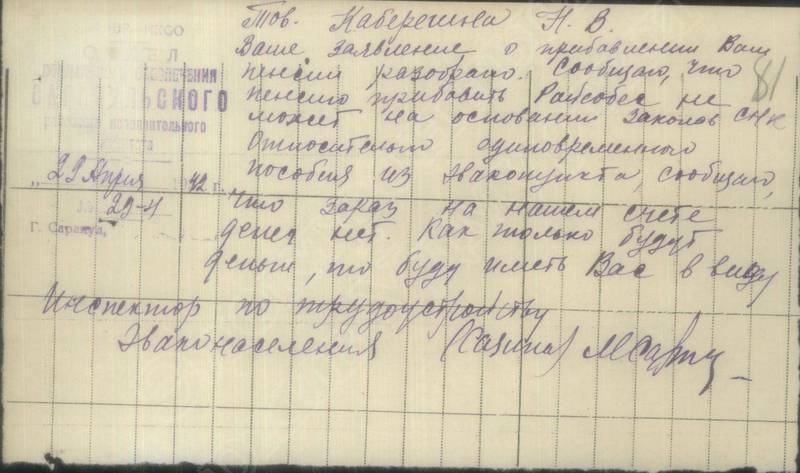 Тов. Каберегина Н. В.
Ваше заявление о прибавлении Вам
пенсии разобрано. Сообщаю, что
пенсию прибавить Райсобес не
может на основании законов СНК
Относительно единовременного
пособия из эвакопункта, сообщаю,
что зараз на нашем счете
денег нет. Как только будут
деньги, то буду иметь Вас в виду
Инспектор по трудоустройству
эваконаселения
81
ОТДЕЛ
"29 Апреля 1942 г.
29-4
Г. Сарапул,